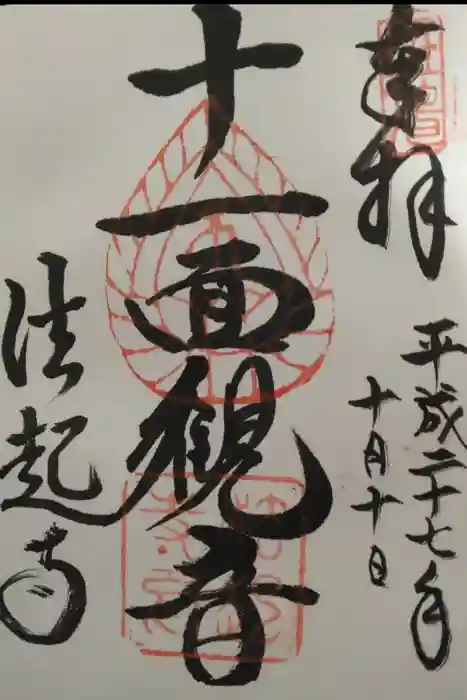 奉拝
平成二十七年
十月十日
十一面観音
法起寺